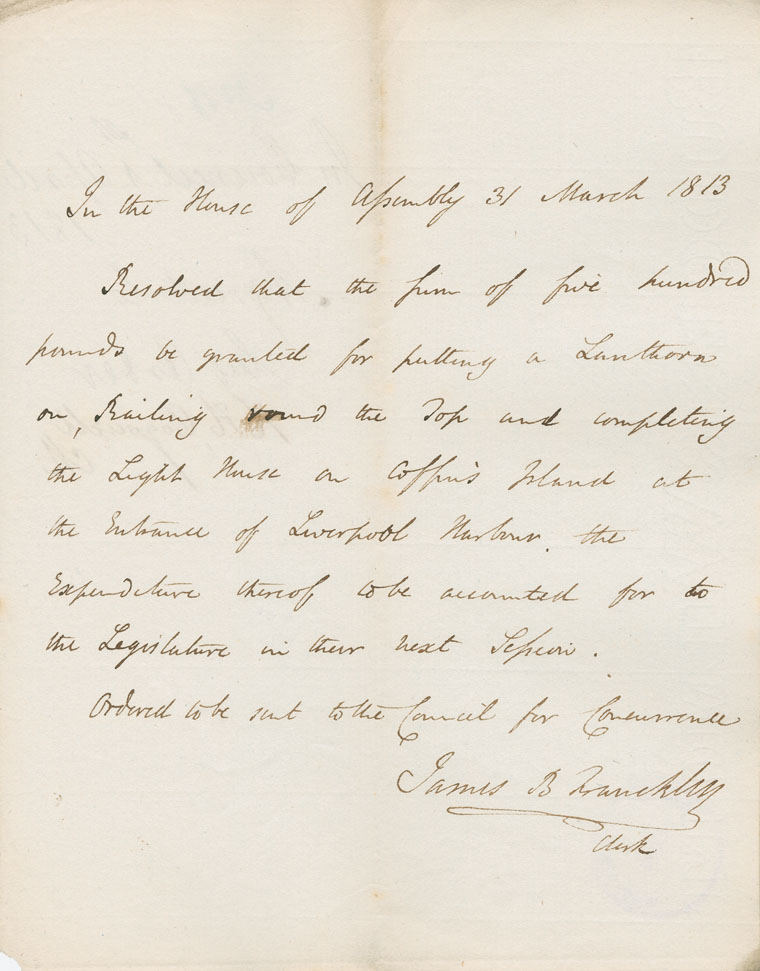 In the House of Assembly 31 March 1813
Resolved that the sum of five hundred
pounds be granted for putting a Lanthorn
on, Railing round the Top and completing
the Light House on Coffin's Island at
the Entrance of Liverpool Harbour. the
Expenditure thereof to be accounted for to
the Legislature in their next Session.
Ordered to be sent to the Council for Concurrence
James B Francklin
Clerk